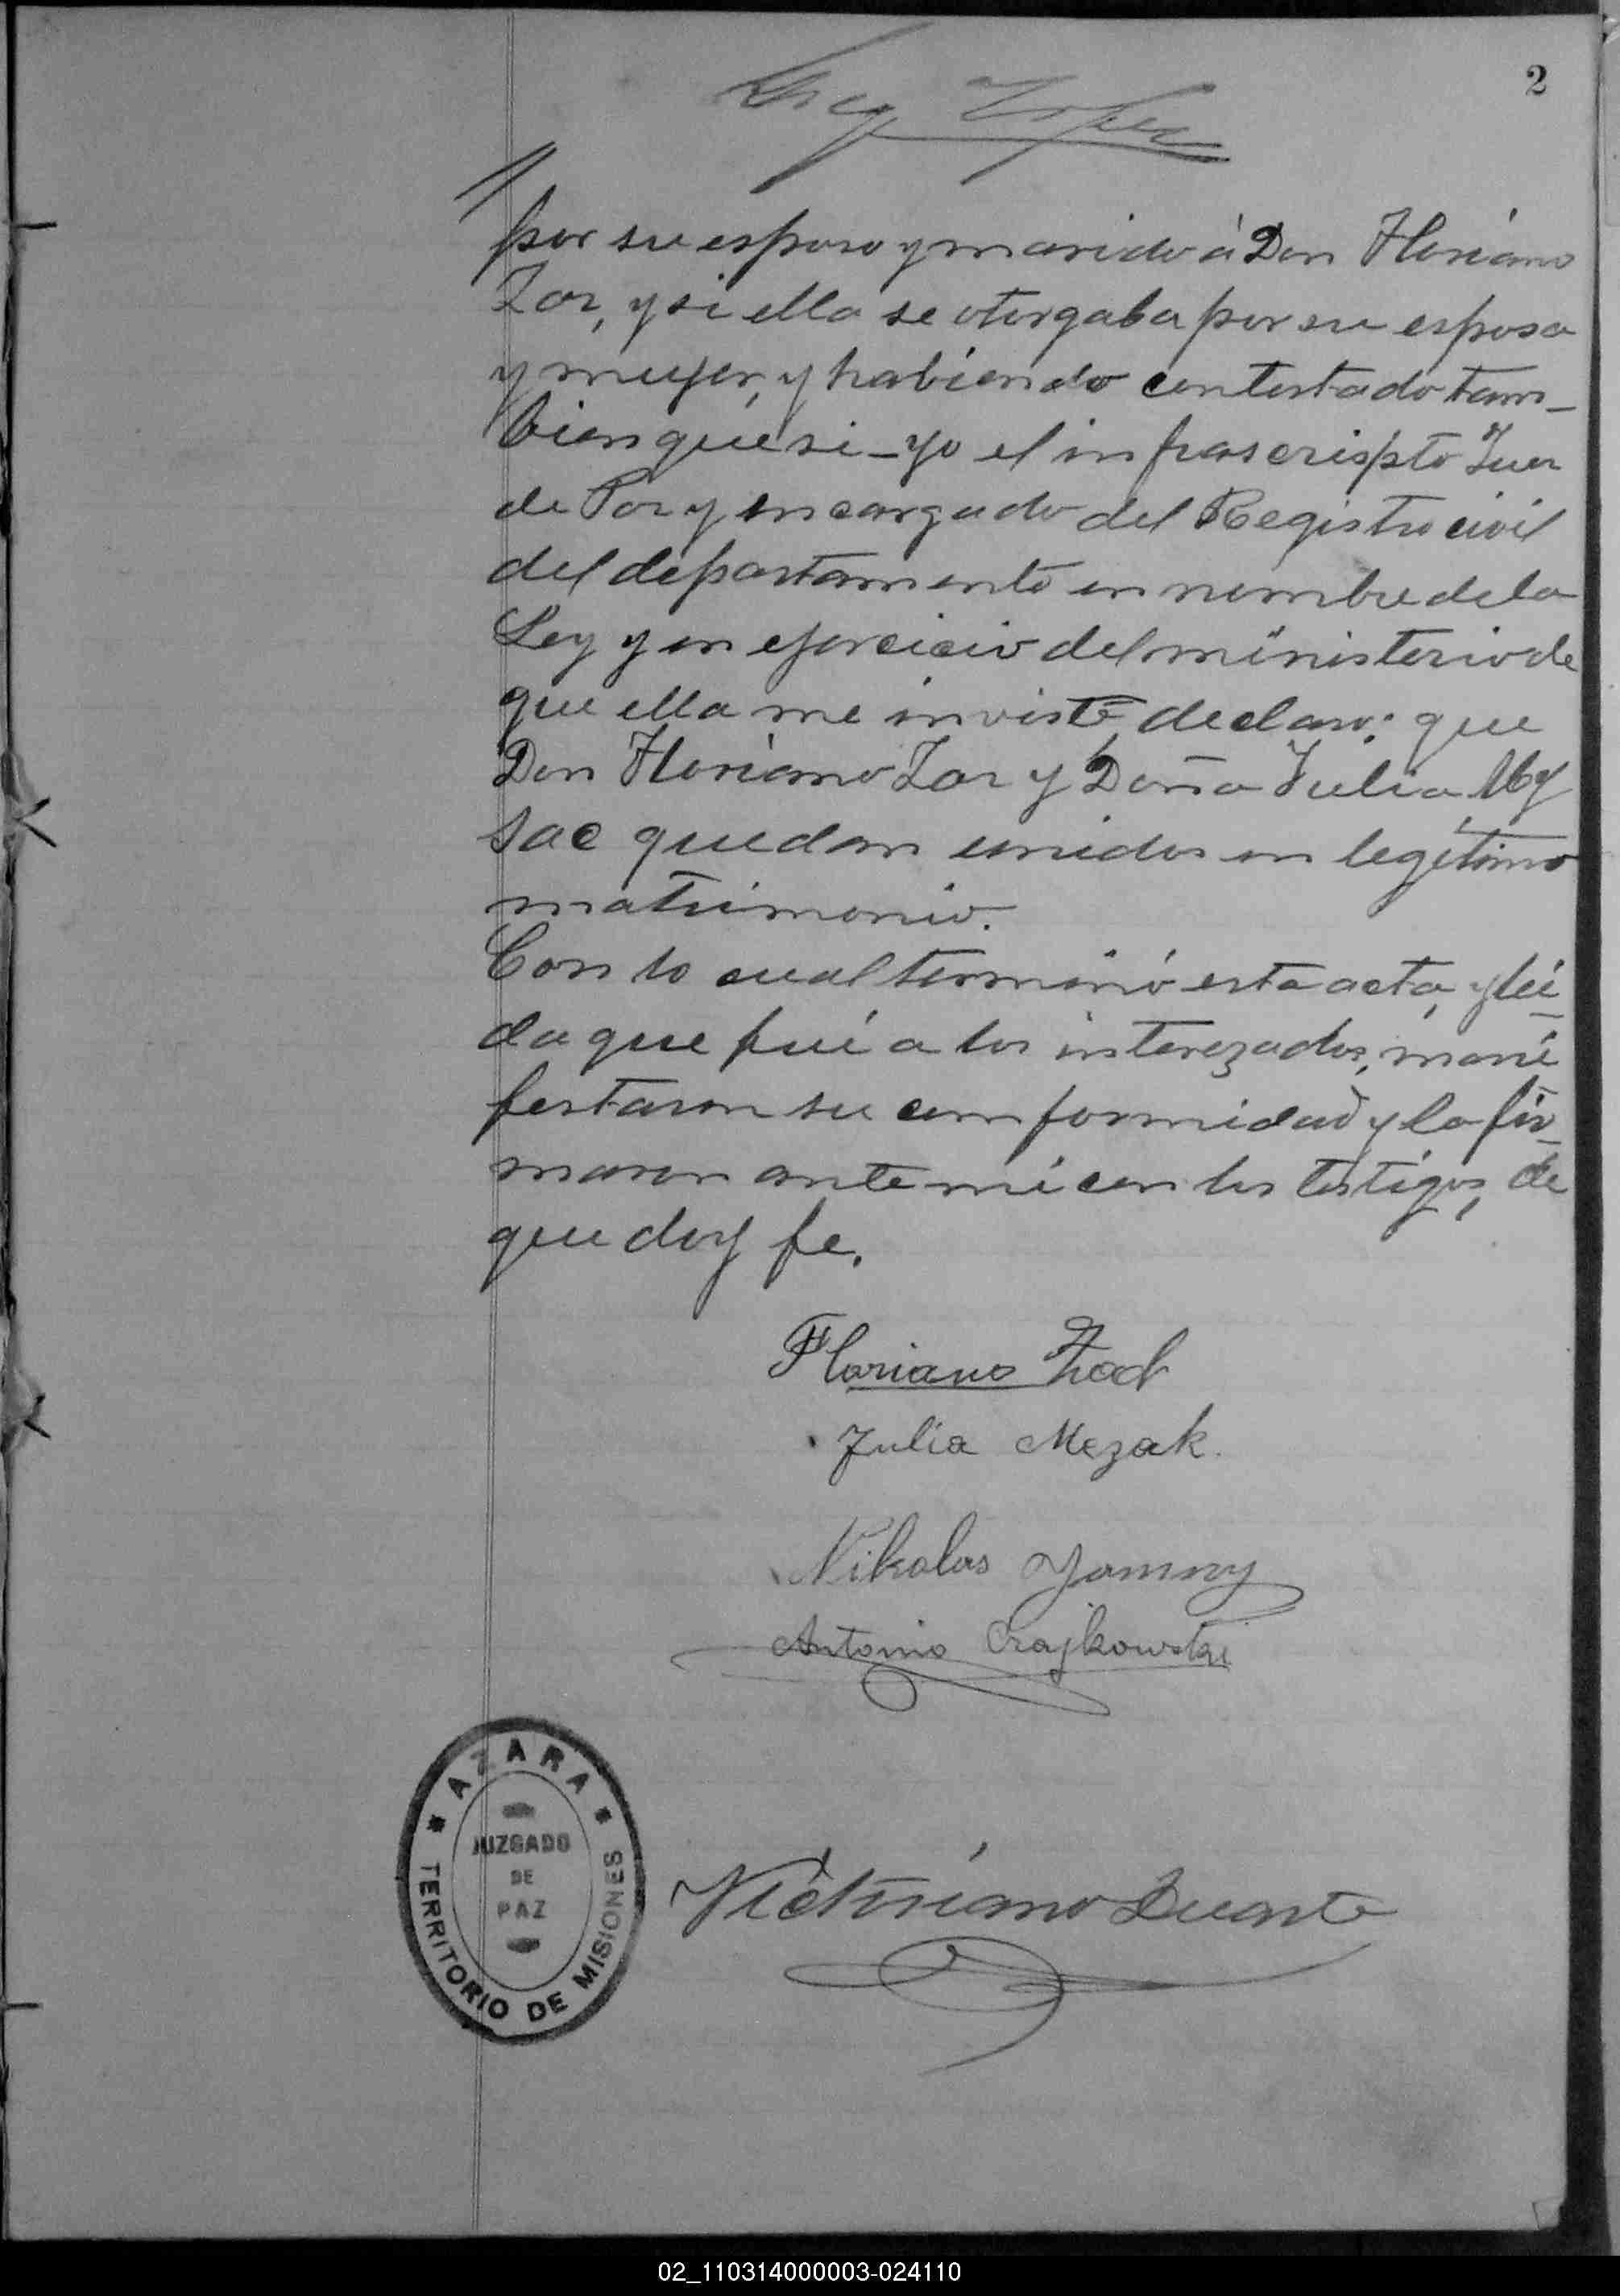 2
por su esposo y marido á Don Floriano
Zac, y si ella se otorgaba por su esposa
y mujer, y habiendo contestado tam-
bien que si - yo el infrascripto Juez
de Paz y encargado del Registro civil
del departamento en nombre de la
Ley y en ejercicio del ministerio de
que ella me inviste, declaro: que
Don Floriano Zac y Doña Julia My
sac quedan unidos en legítimo
matrimonio.
Con lo cual terminó esta acta, y lei
da que fué a los interezados, mani
festaron su conformidad y la fir
maron ante mi con los testigos, de
que doy fe.
Floriano
Julia Mezak.
Nikolas
Antonio Czajkowski
AZARA
JUZGADO
DE
PAZ
TERRITORIO DE MISIONES
Victoriano Duarte
02_110314000003-024110